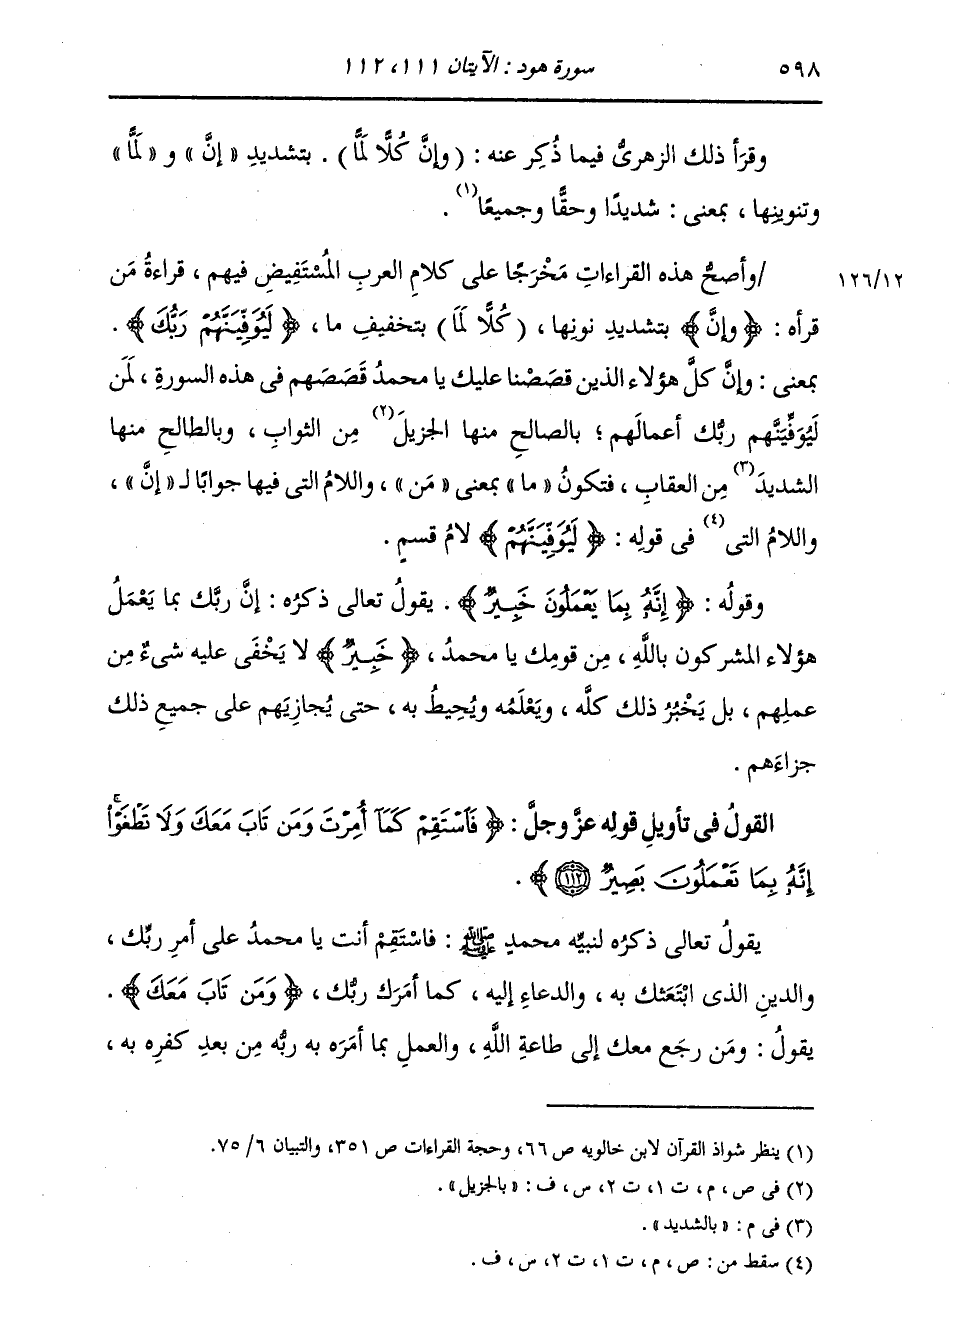 ٥٩٨ سورة هود : الآيتان ١١١ ، ١١٢
وقرَأ ذلك الزهرىُّ فيما ذُكِر عنه : ( وإنَّ كُلًّا لَمًّا ) . بتشديدِ « إنَّ » و « لَمًّا »
وتنوينِها ، بمعنى : شديدًا وحقًّا وجميعًا(١) .
١٢٦/١٢ /وأصحُّ هذه القراءاتِ مَخْرَجًا على كلامِ العربِ المُسْتَفِيضِ فيهم ، قراءةُ مَن
قرأه : ﴿ وإنَّ ﴾ بتشديدِ نونِها ، ( كُلًّا لَمَا ) بتخفيفِ ما ، ﴿ لَيُوَفِّيَنَّهُمْ رَبُّكَ ﴾ .
بمعنى : وإنَّ كلَّ هؤلاء الذين قصَصْنا عليك يا محمدُ قَصَصَهم فى هذه السورةِ ، لَمَن
لَيُوَفِّيَنَّهم ربُّك أعمالَهم ؛ بالصالحِ منها الجزيلَ(٢) مِن الثوابِ ، وبالطالحِ منها
الشديدَ(٣) مِن العقابِ ، فتكونُ « ما » بمعنى « مَن » ، واللامُ التى فيها جوابًا لـ « إنَّ » ،
واللامُ التى(٤) فى قولِه : ﴿ لَيُوَفِّيَنَّهُمْ ﴾ لامُ قسمٍ .
وقولُه : ﴿ إِنَّهُ بِمَا يَعْمَلُونَ خَبِيرٌ ﴾ . يقولُ تعالى ذكرُه : إنَّ ربَّك بما يَعْمَلُ
هؤلاء المشركون باللَّهِ ، مِن قومِك يا محمدُ ، ﴿ خَبِيرٌ ﴾ لا يَخْفَى عليه شىءٌ مِن
عملِهم ، بل يَخْبُرُ ذلك كلَّه ، ويَعْلَمُه ويُحِيطُ به ، حتى يُجازِيَهم على جميعِ ذلك
جزاءَهم .
القولُ فى تأويلِ قولِه عزَّ وجلَّ : ﴿ فَاسْتَقِمْ كَمَا أُمِرْتَ وَمَن تَابَ مَعَكَ وَلَا تَطْغَوْا
إِنَّهُ بِمَا تَعْمَلُونَ بَصِيرٌ ١١٢ ﴾ .
يقولُ تعالى ذكرُه لنبيِّه محمدٍ ﷺ : فاسْتَقِمْ أنت يا محمدُ على أمرِ ربِّك ،
والدينِ الذى ابْتَعَثك به ، والدعاءِ إليه ، كما أمَرَك ربُّك ، ﴿ وَمَن تَابَ مَعَكَ ﴾ .
يقولُ : ومَن رجَع معك إلى طاعةِ اللَّهِ ، والعملِ بما أمَرَه به ربُّه مِن بعدِ كفرِه به ،
(١) ينظر شواذ القرآن لابن خالويه ص ٦٦، وحجة القراءات ص ٣٥١، والتبيان ٦/ ٧٥.
(٢) فى ص ، م ، ت ١، ت ٢، س ، ف : « بالجزيل » .
(٣) فى م : « بالشديد » .
(٤) سقط من : ص ، م ، ت ١، ت ٢، س ، ف .